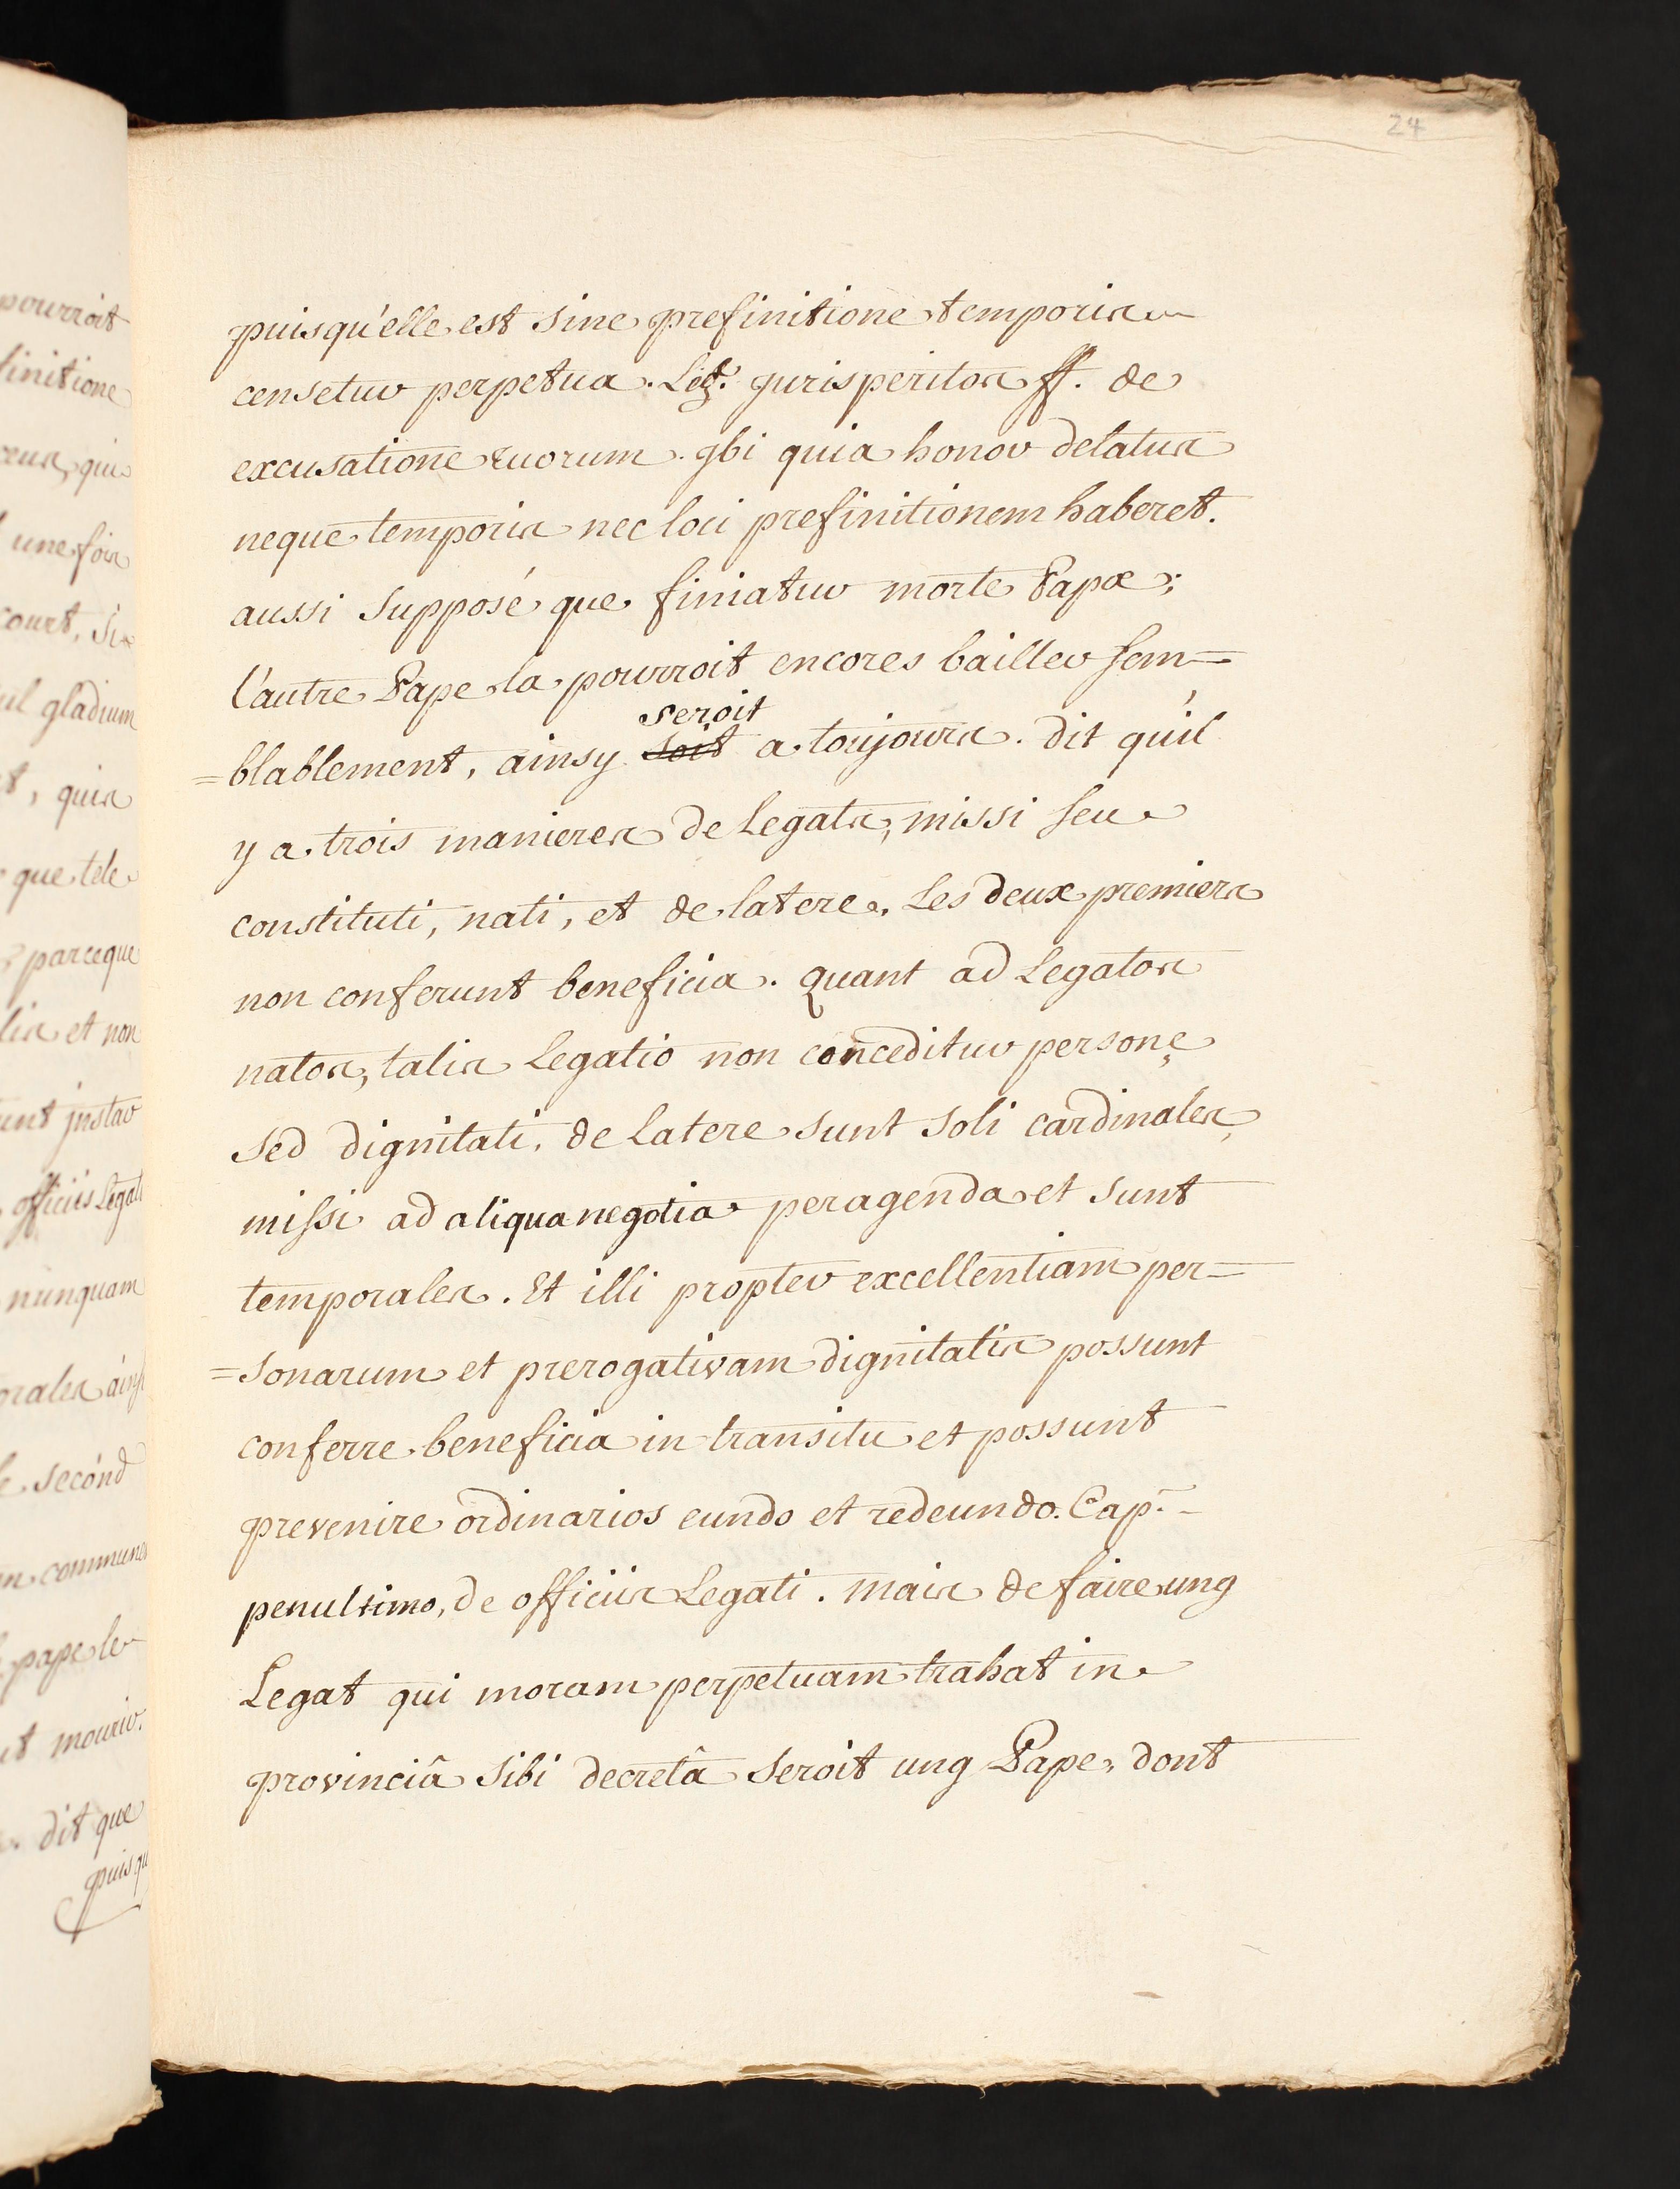 24
puisqu'elle est sine prefinitione temporis
censetur perpetua. Leg. jurisperitos ff. de
excusatione tuorum. Ibi quia honor delatus
neque temporis nec loci prefinitionem haberet.
aussi supposé que finiatur morte Papæ;
l'autre Pape la pourroit encores bailler sem=
seroit
=blablement, ainsy soit a toujours. dit qu'il
y a trois manieres de Legats, missi seu
constituti, nati, et de latere. Les deux premiers
non conferunt beneficia. quant ad Legatos
natos, talis Legatio non conceditur personę
sed dignitati, de Latere sunt soli cardinales,
missi ad aliqua negotia peragenda et sunt
temporales. Et illi propter excellentiam per=
=sonarum et prerogativam dignitatis possunt
conferre beneficia in transitu et possunt
prevenire ordinarios eundo et redeundo. Cap.
penultimo, de officiis Legati. mais de faire ung
Legat qui moram perpetuam trahat in
provinciâ sibi decretâ seroit ung Pape, dont
pourroit
finitione
qui
une fois
court, si
gladium
quis
que tele
parceque
et non
instar
officiis Legati
nunquam
second
commune
pape le
mourir.
dit que
puisqu